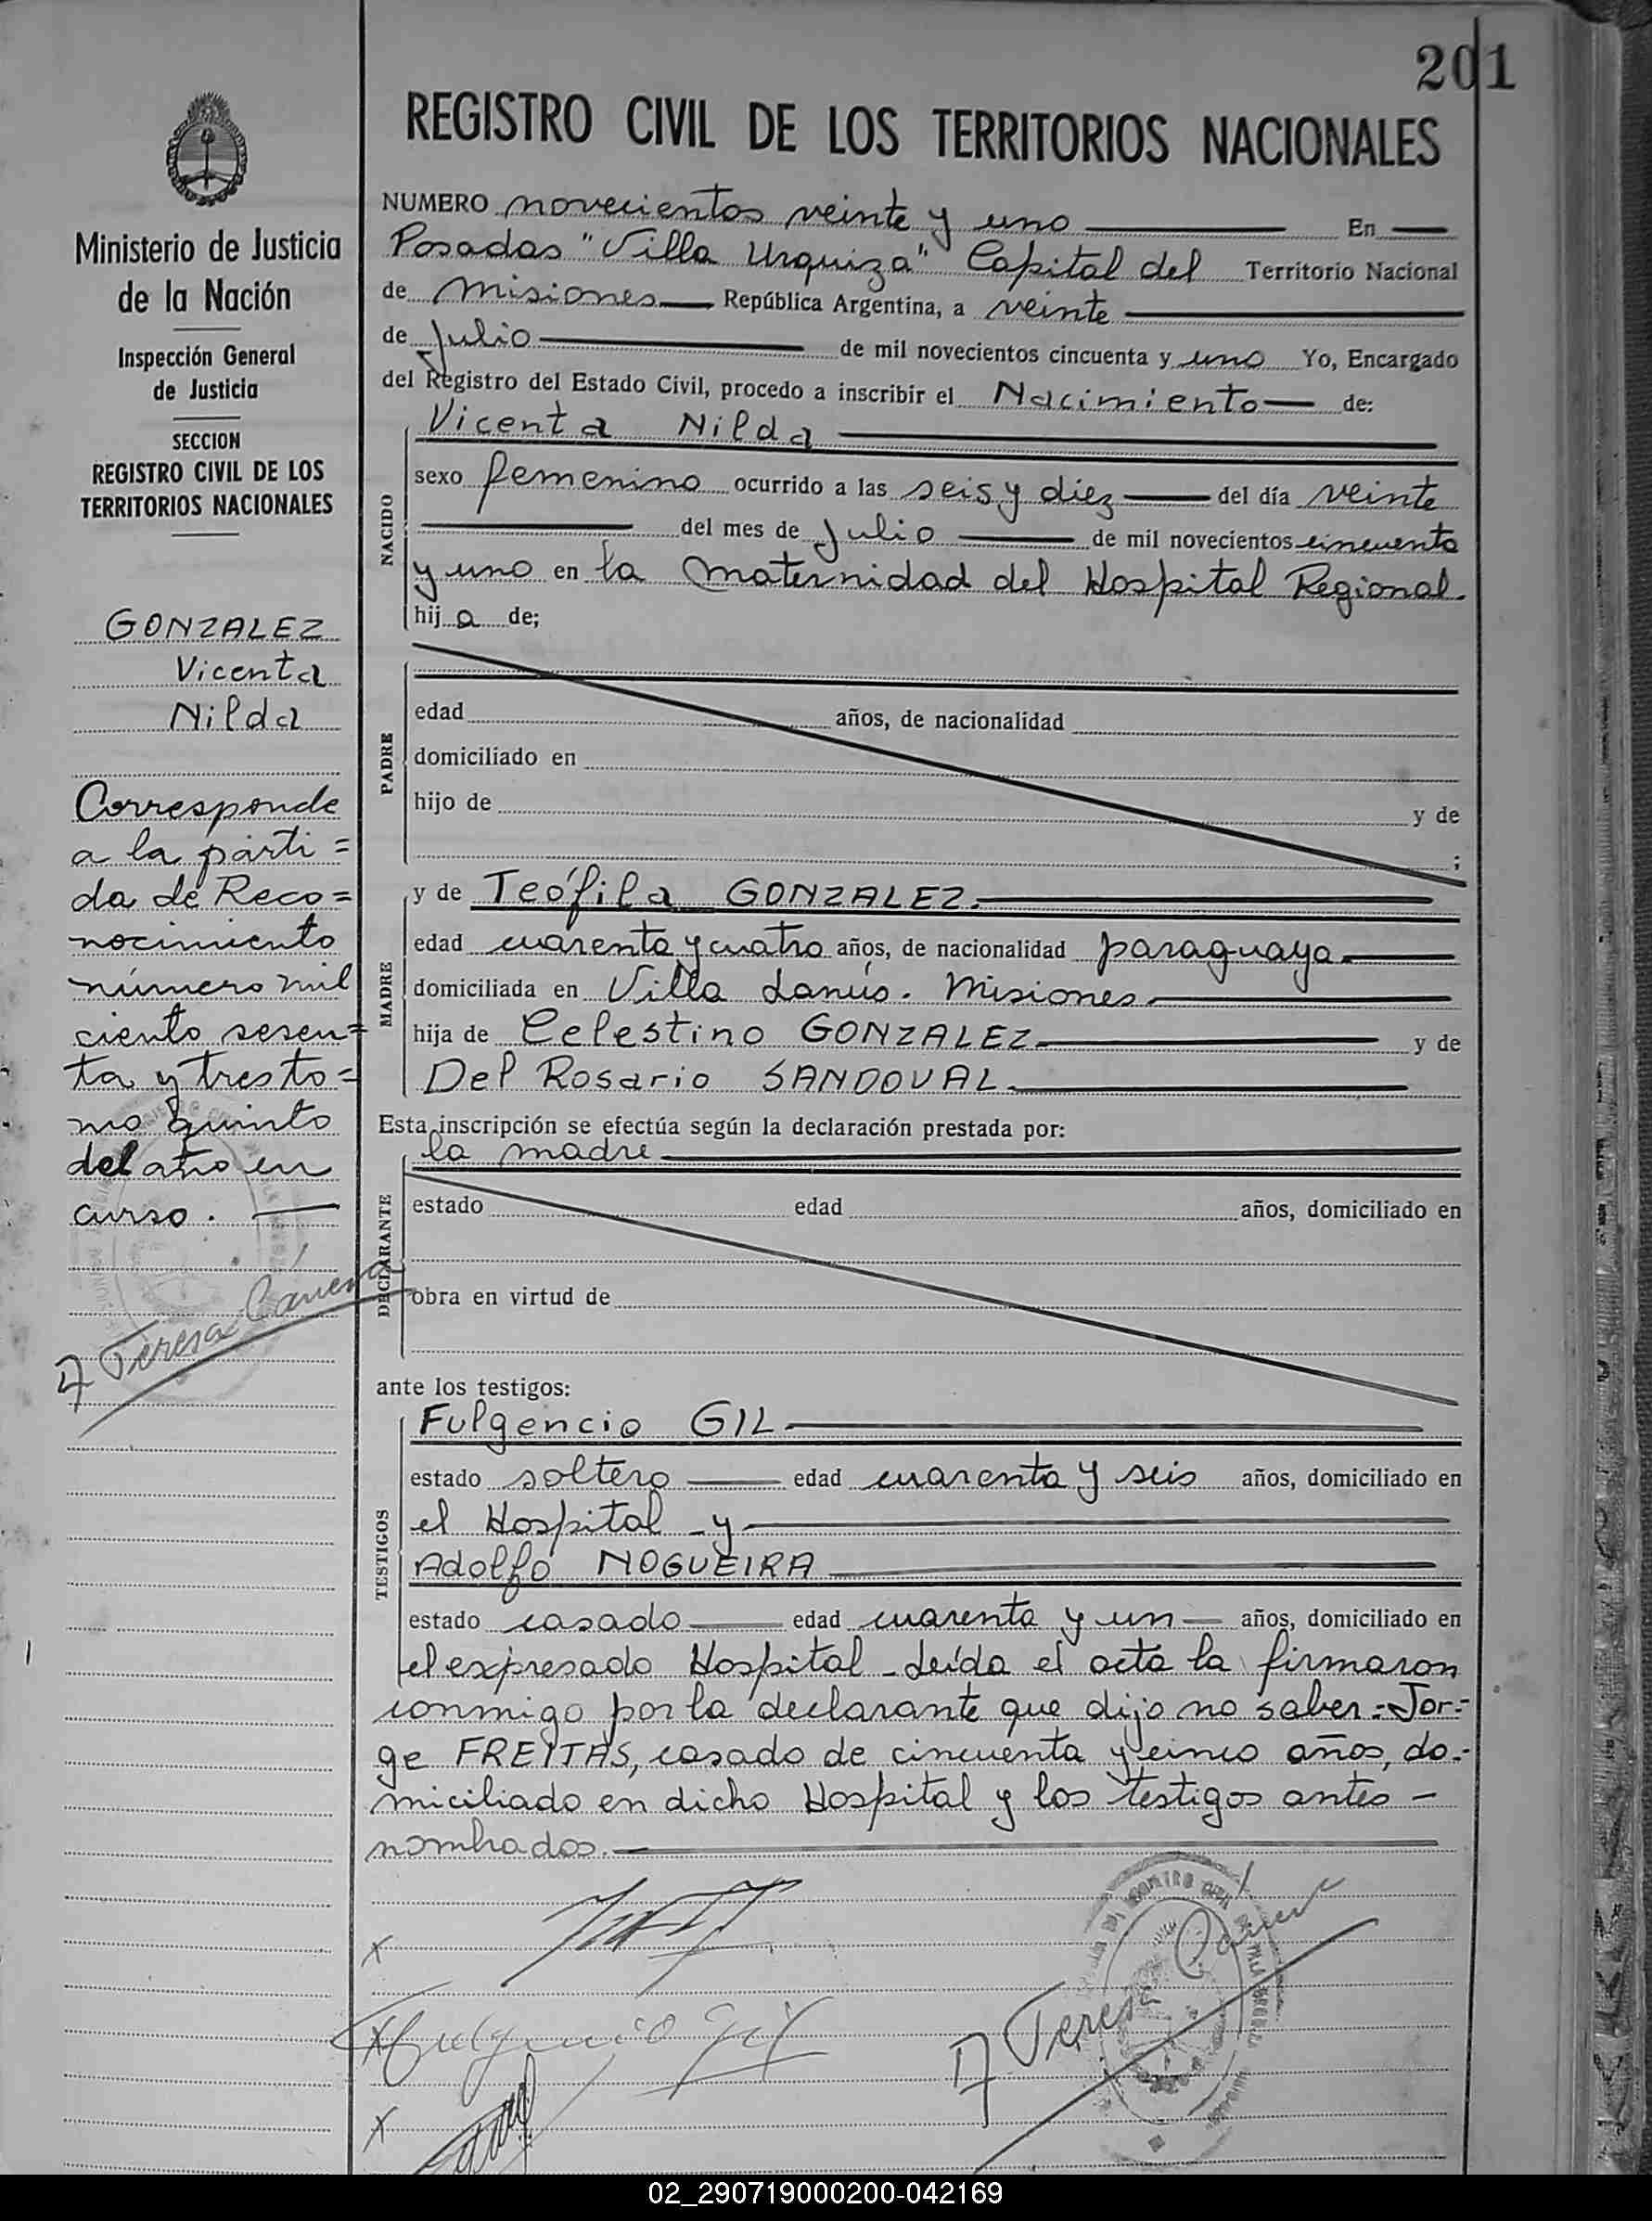 201
REGISTRO CIVIL DE LOS TERRITORIOS NACIONALES
Ministerio de Justicia
de la Nación
Inspección General
de Justicia
SECCION
REGISTRO CIVIL DE LOS
TERRITORIOS NACIONALES
GONZALEZ
Vicenta
Nilda
Corresponde
a la parti=
da de Reco=
nocimiento
número mil
ciento sesen=
ta y tres to=
mo quinto
del año en
curso.
A Teresa
NUMERO novecientos veinte y uno En
Posadas "Villa Urquiza" Capital del Territorio Nacional
de Misiones República Argentina, a veinte
de Julio de mil novecientos cincuenta y uno Yo, Encargado
del Registro del Estado Civil, procedo a inscribir el Nacimiento de:
NACIDO
Vicenta Nilda
sexo femenino ocurrido a las seis y diez del día veinte
del mes de Julio de mil novecientos cincuenta
y uno en la Maternidad del Hospital Regional.
hija de;
PADRE
edad años, de nacionalidad
domiciliado en
hijo de y de
;
MADRE
y de Teófila GONZALEZ.
edad cuarenta y cuatro años, de nacionalidad paraguaya
domiciliada en Villa Lanús. Misiones
hija de Celestino GONZALEZ y de
Del Rosario SANDOVAL.
Esta inscripción se efectúa según la declaración prestada por:
DECLARANTE
la madre
estado edad años, domiciliado en
obra en virtud de
ante los testigos:
TESTIGOS
Fulgencio GIL
estado soltero edad cuarenta y seis años, domiciliado en
el Hospital y
Adolfo NOGUEIRA
estado casado edad cuarenta y un años, domiciliado en
el expresado Hospital - Leída el acta la firmaron
conmigo por la declarante que dijo no saber.=Jor=
ge FREITAS, casado de cincuenta y cinco años, do.-
miciliado en dicho Hospital y los testigos antes -
nombrados.
x
x Fulgencio Gil
A Teresa
x
02_290719000200-042169